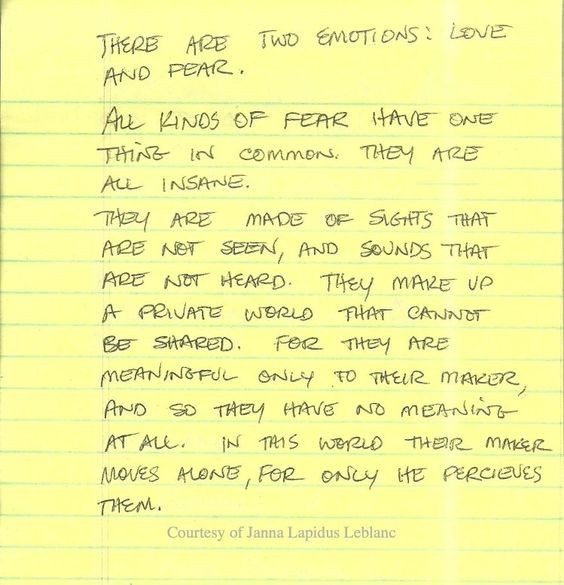 THERE ARE TWO EMOTIONS: LOVE
AND FEAR.
ALL KINDS OF FEAR HAVE ONE
THING IN COMMON. THEY ARE
ALL INSANE.
THEY ARE MADE OF SIGHTS THAT
ARE NOT SEEN, AND SOUNDS THAT
ARE NOT HEARD. THEY MAKE UP
A PRIVATE WORLD THAT CANNOT
BE SHARED. FOR THEY ARE
MEANINGFUL ONLY TO THEIR MAKER,
AND SO THEY HAVE NO MEANING
AT ALL. IN THIS WORLD THEIR MAKER
MOVES ALONE, FOR ONLY HE PERCIEVES
THEM.
Courtesy of Janna Lapidus Leblanc